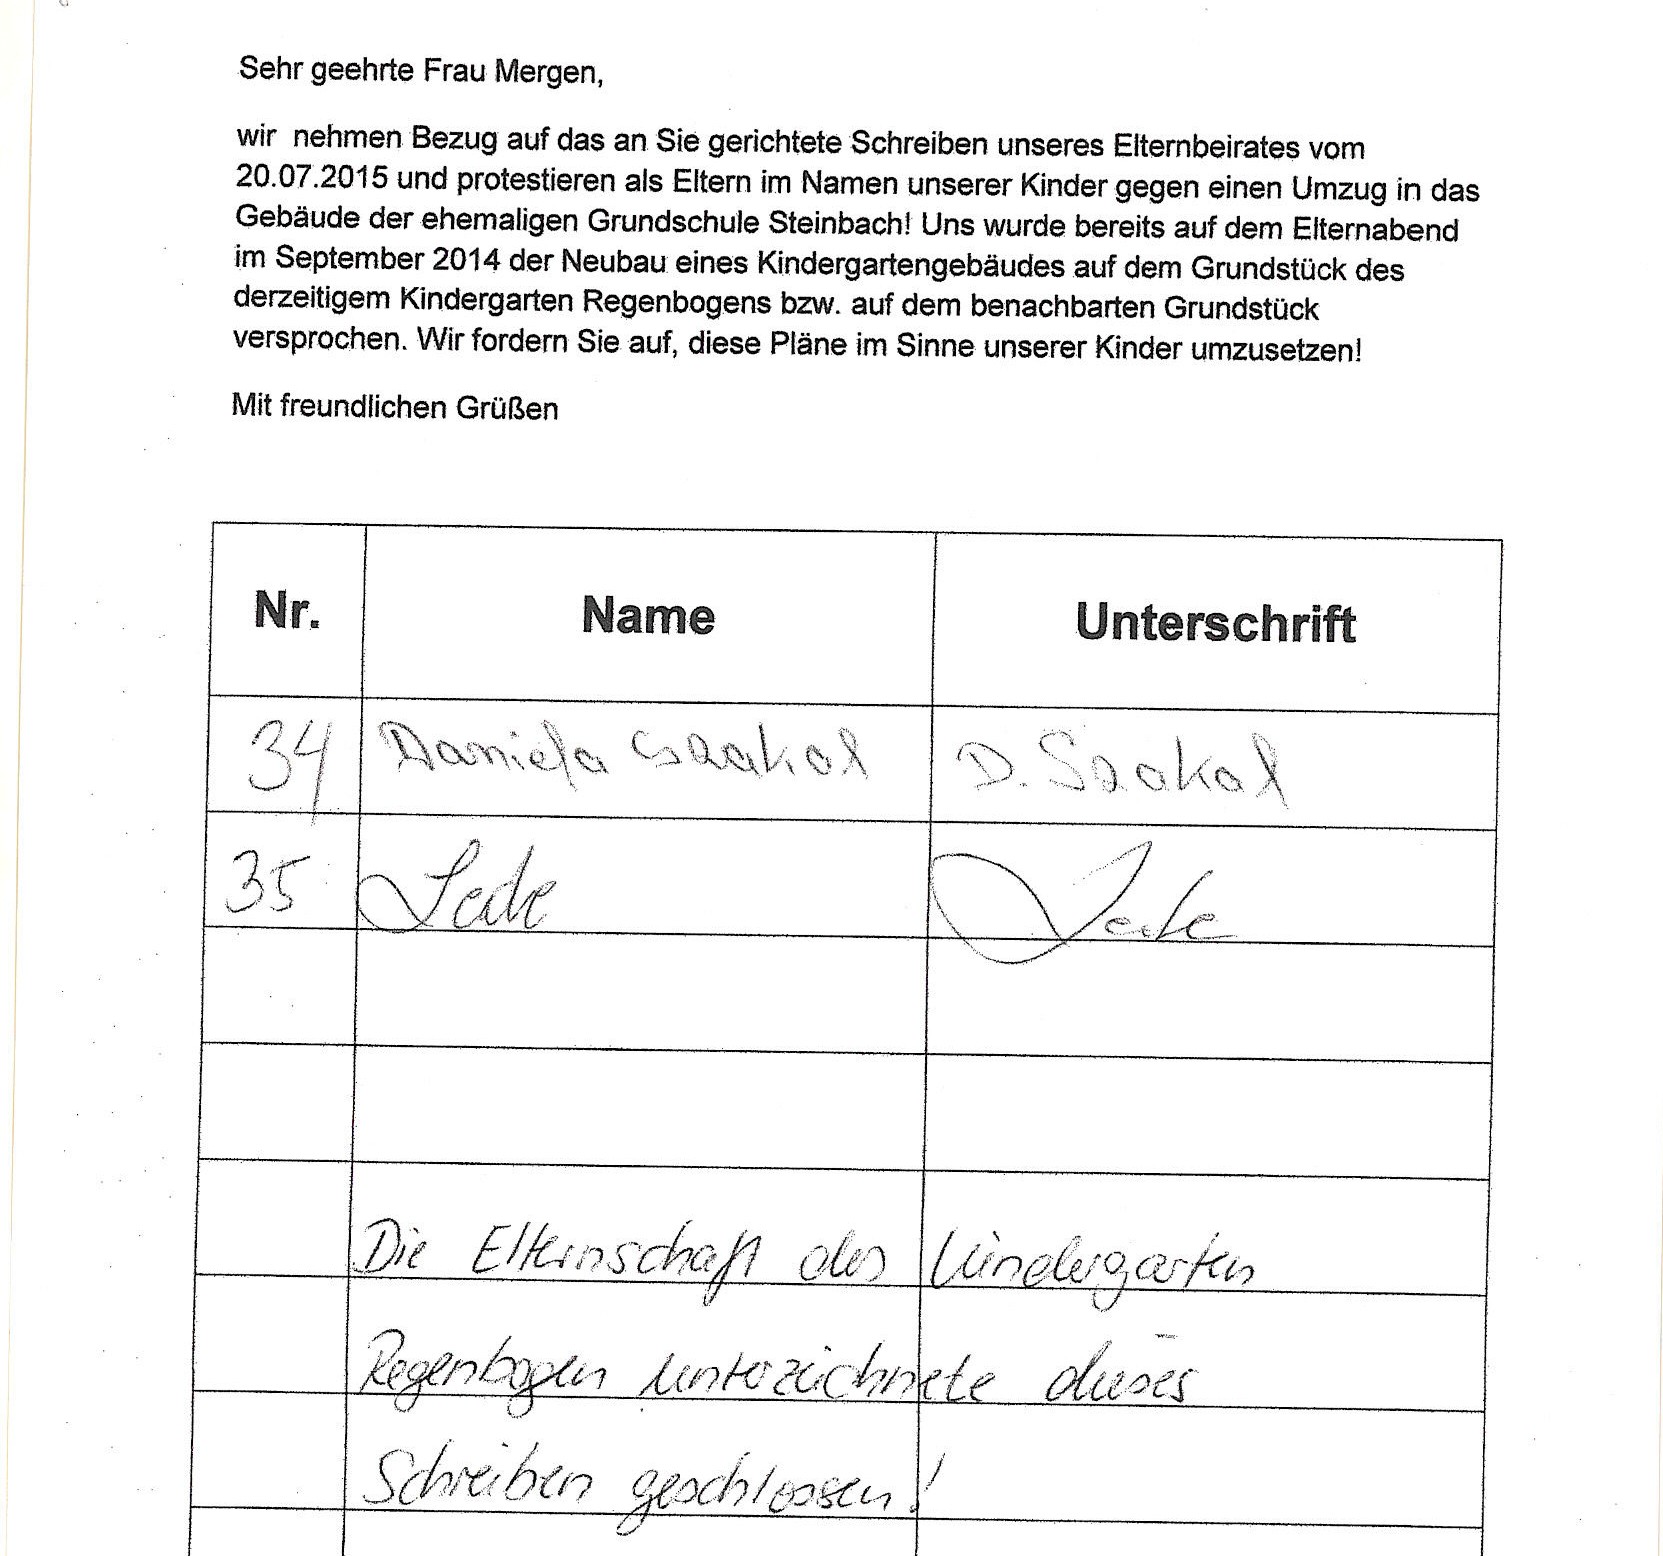 Sehr geehrte Frau Mergen,
wir nehmen Bezug auf das an Sie gerichtete Schreiben unseres Elternbeirates vom
20.07.2015 und protestieren als Eltern im Namen unserer Kinder gegen einen Umzug in das
Gebäude der ehemaligen Grundschule Steinbach! Uns wurde bereits auf dem Elternabend
im September 2014 der Neubau eines Kindergartengebäudes auf dem Grundstück des
derzeitigem Kindergarten Regenbogens bzw. auf dem benachbarten Grundstück
versprochen. Wir fordern Sie auf, diese Pläne im Sinne unserer Kinder umzusetzen!
Mit freundlichen Grüßen
Nr. Name Unterschrift
34 Daniela Szakol D. Szakol
35
Die Elternschaft des Kindergarten
Regenbogen unterzeichnete dieses
Schreiben geschlossen!